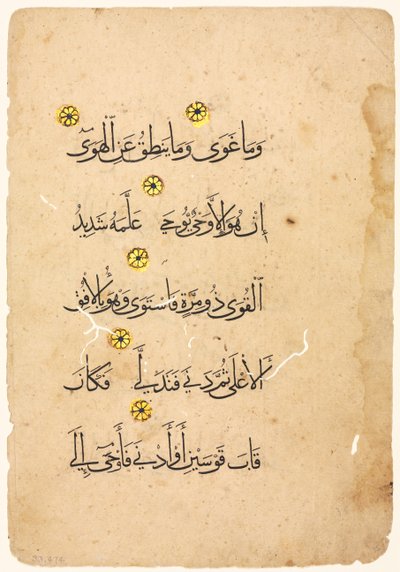 وَمَا غَوَى وَمَا يَنطِقُ عَنِ ٱلْهَوَىٓ
إِنْ هُوَ إِلَّا وَحْيٌ يُوحَى عَلَّمَهُ شَدِيدُ
ٱلْقُوَى ذُو مِرَّةٍ فَاسْتَوَى وَهُوَ بِالْأُفُقِ
الْأَعْلَى ثُمَّ دَنَى فَتَدَلَّى فَكَانَ
قَابَ قَوْسَيْنِ أَوْ أَدْنَى فَأَوْحَىٓ إِلَى
33.474